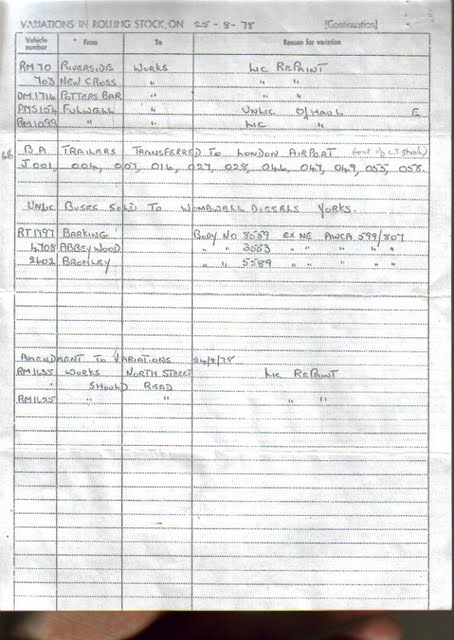 VARIATIONS IN ROLLING STOCK, ON 25-8-78 (Continuation)
Vehicle number From To Reason for variation
RM 70 RIVERSIDE WORKS LIC REPAINT
703 NEW CROSS " " "
DM1716 POTTERS BAR "
DMS154 FULWELL " UNLIC O/HAUL E
RM1099 " " LIC "
B.A TRAILERS TRANSFERRED TO LONDON AIRPORT
J001, 004, 007, 016, 027, 028, 046, 047, 049, 055, 058.
UNLIC BUSES SOLD TO WOMBWELL DIESELS YORKS.
RT1797 BARKING BODY No 8059 EX NE AWCA 599/807
4708 ABBEY WOOD " " 3553 " " " " "
2602 BROMLEY " " 5589 " " " " "
AMENDMENT TO VARIATIONS 24/8/78
RM1655 WORKS NORTH STREET LIC REPAINT
SHOULD READ
RM1625 " " " "